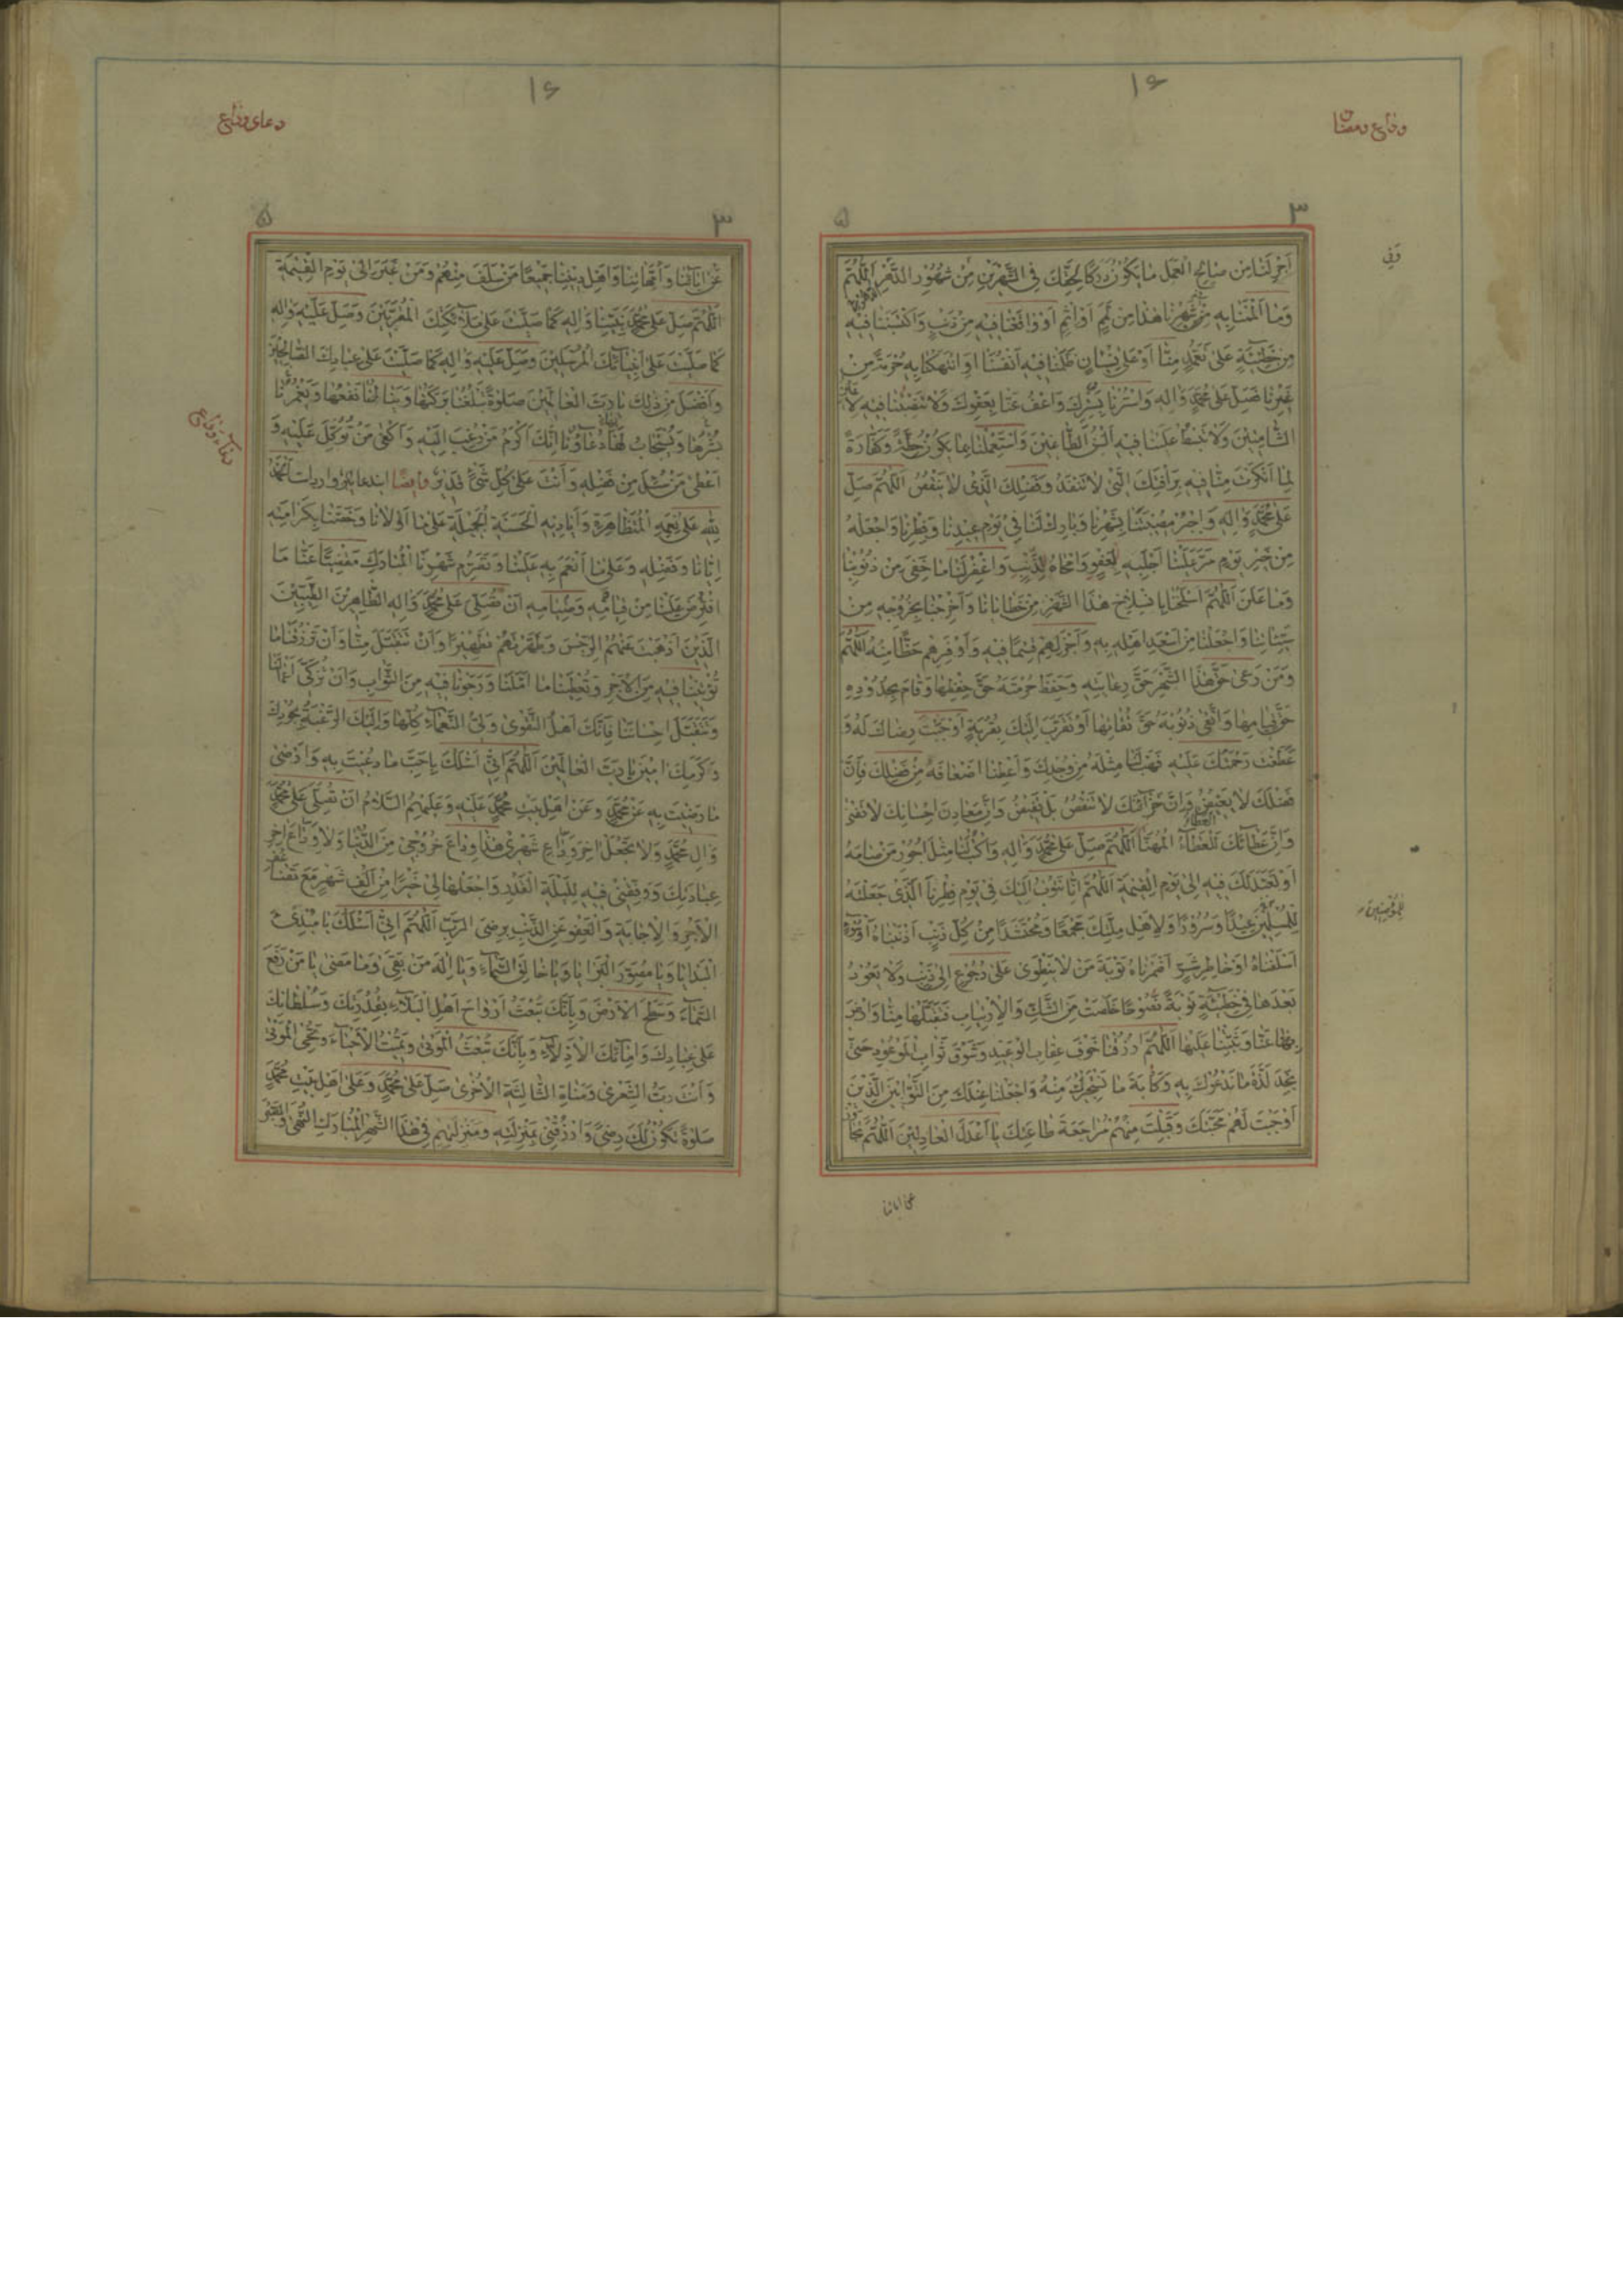 ۱۶
وداع رمضان
۳
۵
وَفِي
اَجْرِ لَنَا مِنْ صَالِحِ الْعَمَلِ مَا يَكُوْنُ دَرَكًا لِحَقِّكَ فِي الشَّهْرَيْنِ مِنْ شُهُوْرِ الدَّهْرِ اَللّٰهُمَّ
وَمَا اَلْمَمْنَا بِهِ فِيْ شَهْرِنَا هٰذَا مِنْ لَمَمٍ اَوْ اِثْمٍ اَوْ وَاقَعْنَا فِيْهِ مِنْ ذَنْبٍ وَاكْتَسَبْنَا فِيْهِ
مِنْ خَطِيْئَةٍ عَلٰى تَعَمُّدٍ مِنَّا اَوْ عَلٰى نِسْيَانٍ ظَلَمْنَا فِيْهِ اَنْفُسَنَا اَوِ انْتَهَكْنَا بِهِ حُرْمَةً مِنْ
غَيْرِنَا فَصَلِّ عَلٰى مُحَمَّدٍ وَاٰلِهِ وَاسْتُرْنَا بِسِتْرِكَ وَاعْفُ عَنَّا بِعَفْوِكَ وَلَا تَنْصِبْنَا فِيْهِ لِاَعْيُنِ
الشَّامِتِيْنَ وَلَا تَبْسُطْ عَلَيْنَا فِيْهِ اَلْسُنَ الطَّاعِنِيْنَ وَاسْتَعْمِلْنَا بِمَا يَكُوْنُ حِطَّةً وَكَفَّارَةً
لِمَا اَنْكَرْتَ مِنَّا فِيْهِ بِرَأْفَتِكَ الَّتِيْ لَا تَنْفَدُ وَفَضْلِكَ الَّذِيْ لَا يَنْقُصُ اَللّٰهُمَّ صَلِّ
عَلٰى مُحَمَّدٍ وَاٰلِهِ وَاجْبُرْ مُصِيْبَتَنَا بِشَهْرِنَا وَبَارِكْ لَنَا فِيْ يَوْمِ عِيْدِنَا وَفِطْرِنَا وَاجْعَلْهُ
مِنْ خَيْرِ يَوْمٍ مَرَّ عَلَيْنَا اَجْلَبِهِ لِلْعَفْوِ وَاَمْحَاهُ لِلذَّنْبِ وَاغْفِرْ لَنَا مَا خَفِيَ مِنْ ذُنُوْبِنَا
وَمَا عَلَنَ اَللّٰهُمَّ اسْلَخْنَا بِانْسِلَاخِ هٰذَا الشَّهْرِ مِنْ خَطَايَانَا وَاَخْرِجْنَا بِخُرُوْجِهِ مِنْ
سَيِّئَاتِنَا وَاجْعَلْنَا مِنْ اَسْعَدِ اَهْلِهِ بِهِ وَاَجْزَلِهِمْ قِسْمًا فِيْهِ وَاَوْفَرِهِمْ حَظًّا مِنْهُ اَللّٰهُمَّ
وَمَنْ رَعٰى حَقَّ هٰذَا الشَّهْرِ حَقَّ رِعَايَتِهِ وَحَفِظَ حُرْمَتَهُ حَقَّ حِفْظِهَا وَقَامَ بِحُدُوْدِهِ
حَقَّ قِيَامِهَا وَاتَّقٰى ذُنُوْبَهُ حَقَّ تُقَاتِهَا اَوْ تَقَرَّبَ اِلَيْكَ بِقُرْبَةٍ اَوْجَبَتْ رِضَاكَ لَهُ وَ
عَطَفَتْ رَحْمَتَكَ عَلَيْهِ فَهَبْ لَنَا مِثْلَهُ مِنْ وُجْدِكَ وَاَعْطِنَا اَضْعَافَهُ مِنْ فَضْلِكَ فَاِنَّ
فَضْلَكَ لَا يَغِيْضُ وَاِنَّ خَزَائِنَكَ لَا تَنْقُصُ بَلْ تَفِيْضُ وَاِنَّ مَعَادِنَ اِحْسَانِكَ لَا تَفْنٰى
وَاِنَّ عَطَائَكَ لَلْعَطَاءُ الْمُهَنَّا اَللّٰهُمَّ صَلِّ عَلٰى مُحَمَّدٍ وَاٰلِهِ وَاكْتُبْ لَنَا مِثْلَ اُجُوْرِ مَنْ صَامَهُ
اَوْ تَعَبَّدَ لَكَ فِيْهِ اِلٰى يَوْمِ الْقِيٰمَةِ اَللّٰهُمَّ اِنَّا نَتُوْبُ اِلَيْكَ فِيْ يَوْمِ فِطْرِنَا الَّذِيْ جَعَلْتَهُ
لِلْمُسْلِمِيْنَ عِيْدًا وَسُرُوْرًا وَلِاَهْلِ مِلَّتِكَ مَجْمَعًا وَمُحْتَشَدًا مِنْ كُلِّ ذَنْبٍ اَذْنَبْنَاهُ اَوْ سُوْءٍ
للمؤمنين
اَسْلَفْنَاهُ اَوْ خَاطِرِ شَرٍّ اَضْمَرْنَاهُ تَوْبَةَ مَنْ لَا يَنْطَوِيْ عَلٰى رُجُوْعٍ اِلٰى ذَنْبٍ وَلَا يَعُوْدُ
بَعْدَهَا فِيْ خَطِيْئَةٍ تَوْبَةً نَصُوْحًا خَلَصَتْ مِنَ الشَّكِّ وَالْاِرْتِيَابِ فَتَقَبَّلْهَا مِنَّا وَارْضَ
بِهَا عَنَّا وَثَبِّتْنَا عَلَيْهَا اَللّٰهُمَّ ارْزُقْنَا خَوْفَ عِقَابِ الْوَعِيْدِ وَشَوْقَ ثَوَابِ الْمَوْعُوْدِ حَتّٰى
نَجِدَ لَذَّةَ مَا نَدْعُوْكَ بِهِ وَكَأْبَةَ مَا نَسْتَجِيْرُكَ مِنْهُ وَاجْعَلْنَا عِنْدَكَ مِنَ التَّوَّابِيْنَ الَّذِيْنَ
اَوْجَبْتَ لَهُمْ مَحَبَّتَكَ وَقَبِلْتَ مِنْهُمْ مُرَاجَعَةَ طَاعَتِكَ يَا اَعْدَلَ الْعَادِلِيْنَ اَللّٰهُمَّ تَجَاوَزْ
عن اٰبائنا
۱۶
دعای وداع
۳
۵
عَنْ اٰبَائِنَا وَاُمَّهَاتِنَا وَاَهْلِ دِيْنِنَا جَمِيْعًا مَنْ سَلَفَ مِنْهُمْ وَمَنْ غَبَرَ اِلٰى يَوْمِ الْقِيٰمَةِ
اَللّٰهُمَّ صَلِّ عَلٰى مُحَمَّدٍ نَبِيِّنَا وَاٰلِهِ كَمَا صَلَّيْتَ عَلٰى مَلٰئِكَتِكَ الْمُقَرَّبِيْنَ وَصَلِّ عَلَيْهِ وَاٰلِهِ
كَمَا صَلَّيْتَ عَلٰى اَنْبِيَائِكَ الْمُرْسَلِيْنَ وَصَلِّ عَلَيْهِ وَاٰلِهِ كَمَا صَلَّيْتَ عَلٰى عِبَادِكَ الصَّالِحِيْنَ
وَاَفْضَلَ مِنْ ذٰلِكَ يَا رَبَّ الْعَالَمِيْنَ صَلٰوةً تَبْلُغُنَا بَرَكَتُهَا وَيَنَالُنَا نَفْعُهَا وَيَغْمُرُنَا
دعاء وداع
يُسْرُهَا وَيُسْتَجَابُ لَهَا دُعَاؤُنَا اِنَّكَ اَكْرَمُ مَنْ رُغِبَ اِلَيْهِ وَاَكْفٰى مَنْ تُوُكِّلَ عَلَيْهِ وَ
اَعْطٰى مَنْ سُئِلَ مِنْ فَضْلِهِ وَاَنْتَ عَلٰى كُلِّ شَيْءٍ قَدِيْرٌ وايضًا ايندعا اَلْحَمْدُ
لِلّٰهِ عَلٰى نِعَمِهِ الْمُتَظَاهِرَةِ وَاَيَادِيْهِ الْحَسَنَةِ الْجَمِيْلَةِ عَلٰى مَا اَوْلَانَا وَخَصَّنَا بِكَرَامَتِهِ
اِيَّانَا وَفَضْلِهِ وَعَلٰى مَا اَنْعَمَ بِهِ عَلَيْنَا وَتَصَرُّمِ شَهْرِنَا الْمُبَارَكِ مَقْضِيًّا عَنَّا مَا
افْتَرَضَ عَلَيْنَا مِنْ قِيَامِهِ وَصِيَامِهِ اَنْ تُصَلِّيَ عَلٰى مُحَمَّدٍ وَاٰلِهِ الطَّاهِرِيْنَ الطَّيِّبِيْنَ
الَّذِيْنَ اَذْهَبْتَ عَنْهُمُ الرِّجْسَ وَطَهَّرْتَهُمْ تَطْهِيْرًا وَاَنْ تَتَقَبَّلَ مِنَّا وَاَنْ تَرْزُقَنَا مَا
تُؤْتِيْنَا فِيْهِ مِنَ الْاَجْرِ وَتُعْطِيَنَا مَا اَمَّلْنَا وَرَجَوْنَا فِيْهِ مِنَ الثَّوَابِ وَاَنْ تُزَكِّيَ اَعْمَالَنَا
وَتَتَقَبَّلَ اِحْسَانَنَا فَاِنَّكَ اَهْلُ التَّقْوٰى وَوَلِيُّ النَّعْمَاءِ كُلِّهَا وَاِلَيْكَ الرَّغْبَةُ بِجُوْدِكَ
وَكَرَمِكَ اٰمِيْنَ يَا رَبَّ الْعَالَمِيْنَ اَللّٰهُمَّ اِنِّيْ اَسْئَلُكَ بِاَحَبِّ مَا دُعِيْتَ بِهِ وَاَرْضٰى
مَا رَضِيْتَ بِهِ عَنْ مُحَمَّدٍ وَعَنْ اَهْلِ بَيْتِ مُحَمَّدٍ عَلَيْهِ وَعَلَيْهِمُ السَّلَامُ اَنْ تُصَلِّيَ عَلٰى مُحَمَّدٍ
وَاٰلِ مُحَمَّدٍ وَلَا تَجْعَلْ اٰخِرَ وَدَاعِ شَهْرِيْ هٰذَا وَدَاعَ خُرُوْجِيْ مِنَ الدُّنْيَا وَلَا وَدَاعَ اٰخِرِ
عِبَادَتِكَ وَوَفِّقْنِيْ فِيْهِ لِلَيْلَةِ الْقَدْرِ وَاجْعَلْهَا لِيْ خَيْرًا مِنْ اَلْفِ شَهْرٍ مَعَ تَضَاعُفِ
الْاَجْرِ وَالْاِجَابَةِ وَالْعَفْوِ عَنِ الذَّنْبِ بِرِضَى الرَّبِّ اَللّٰهُمَّ اِنِّيْ اَسْئَلُكَ يَا مُبْدِئَ
الْبَدَايَا وَيَا مُصَوِّرَ الْبَرَايَا وَيَا خَالِقَ السَّمَاءِ وَيَا اِلٰهَ مَنْ بَقِيَ وَمَا مَضٰى يَا مَنْ رَفَعَ
السَّمَاءَ وَسَطَحَ الْاَرْضَ وَبِاَنَّكَ تَبْعَثُ اَرْوَاحَ اَهْلِ الْبَلَاءِ بِقُدْرَتِكَ وَسُلْطَانِكَ
عَلٰى عِبَادِكَ وَاِمَائِكَ الْاَذِلَّاءِ وَبِاَنَّكَ تَبْعَثُ الْمَوْتٰى وَتُمِيْتُ الْاَحْيَاءَ وَتُحْيِي الْمَوْتٰى
وَاَنْتَ رَبُّ الشِّعْرٰى وَمَنَاةَ الثَّالِثَةِ الْاُخْرٰى صَلِّ عَلٰى مُحَمَّدٍ وَعَلٰى اَهْلِ بَيْتِ مُحَمَّدٍ
صَلٰوةً تَكُوْنُ لَكَ رِضًى وَارْزُقْنِيْ بِمَنْزِلَتِهِ وَمَنْزِلَتِهِمْ فِيْ هٰذَا الشَّهْرِ الْمُبَارَكِ النُّهٰى وَالتَّقْوٰى